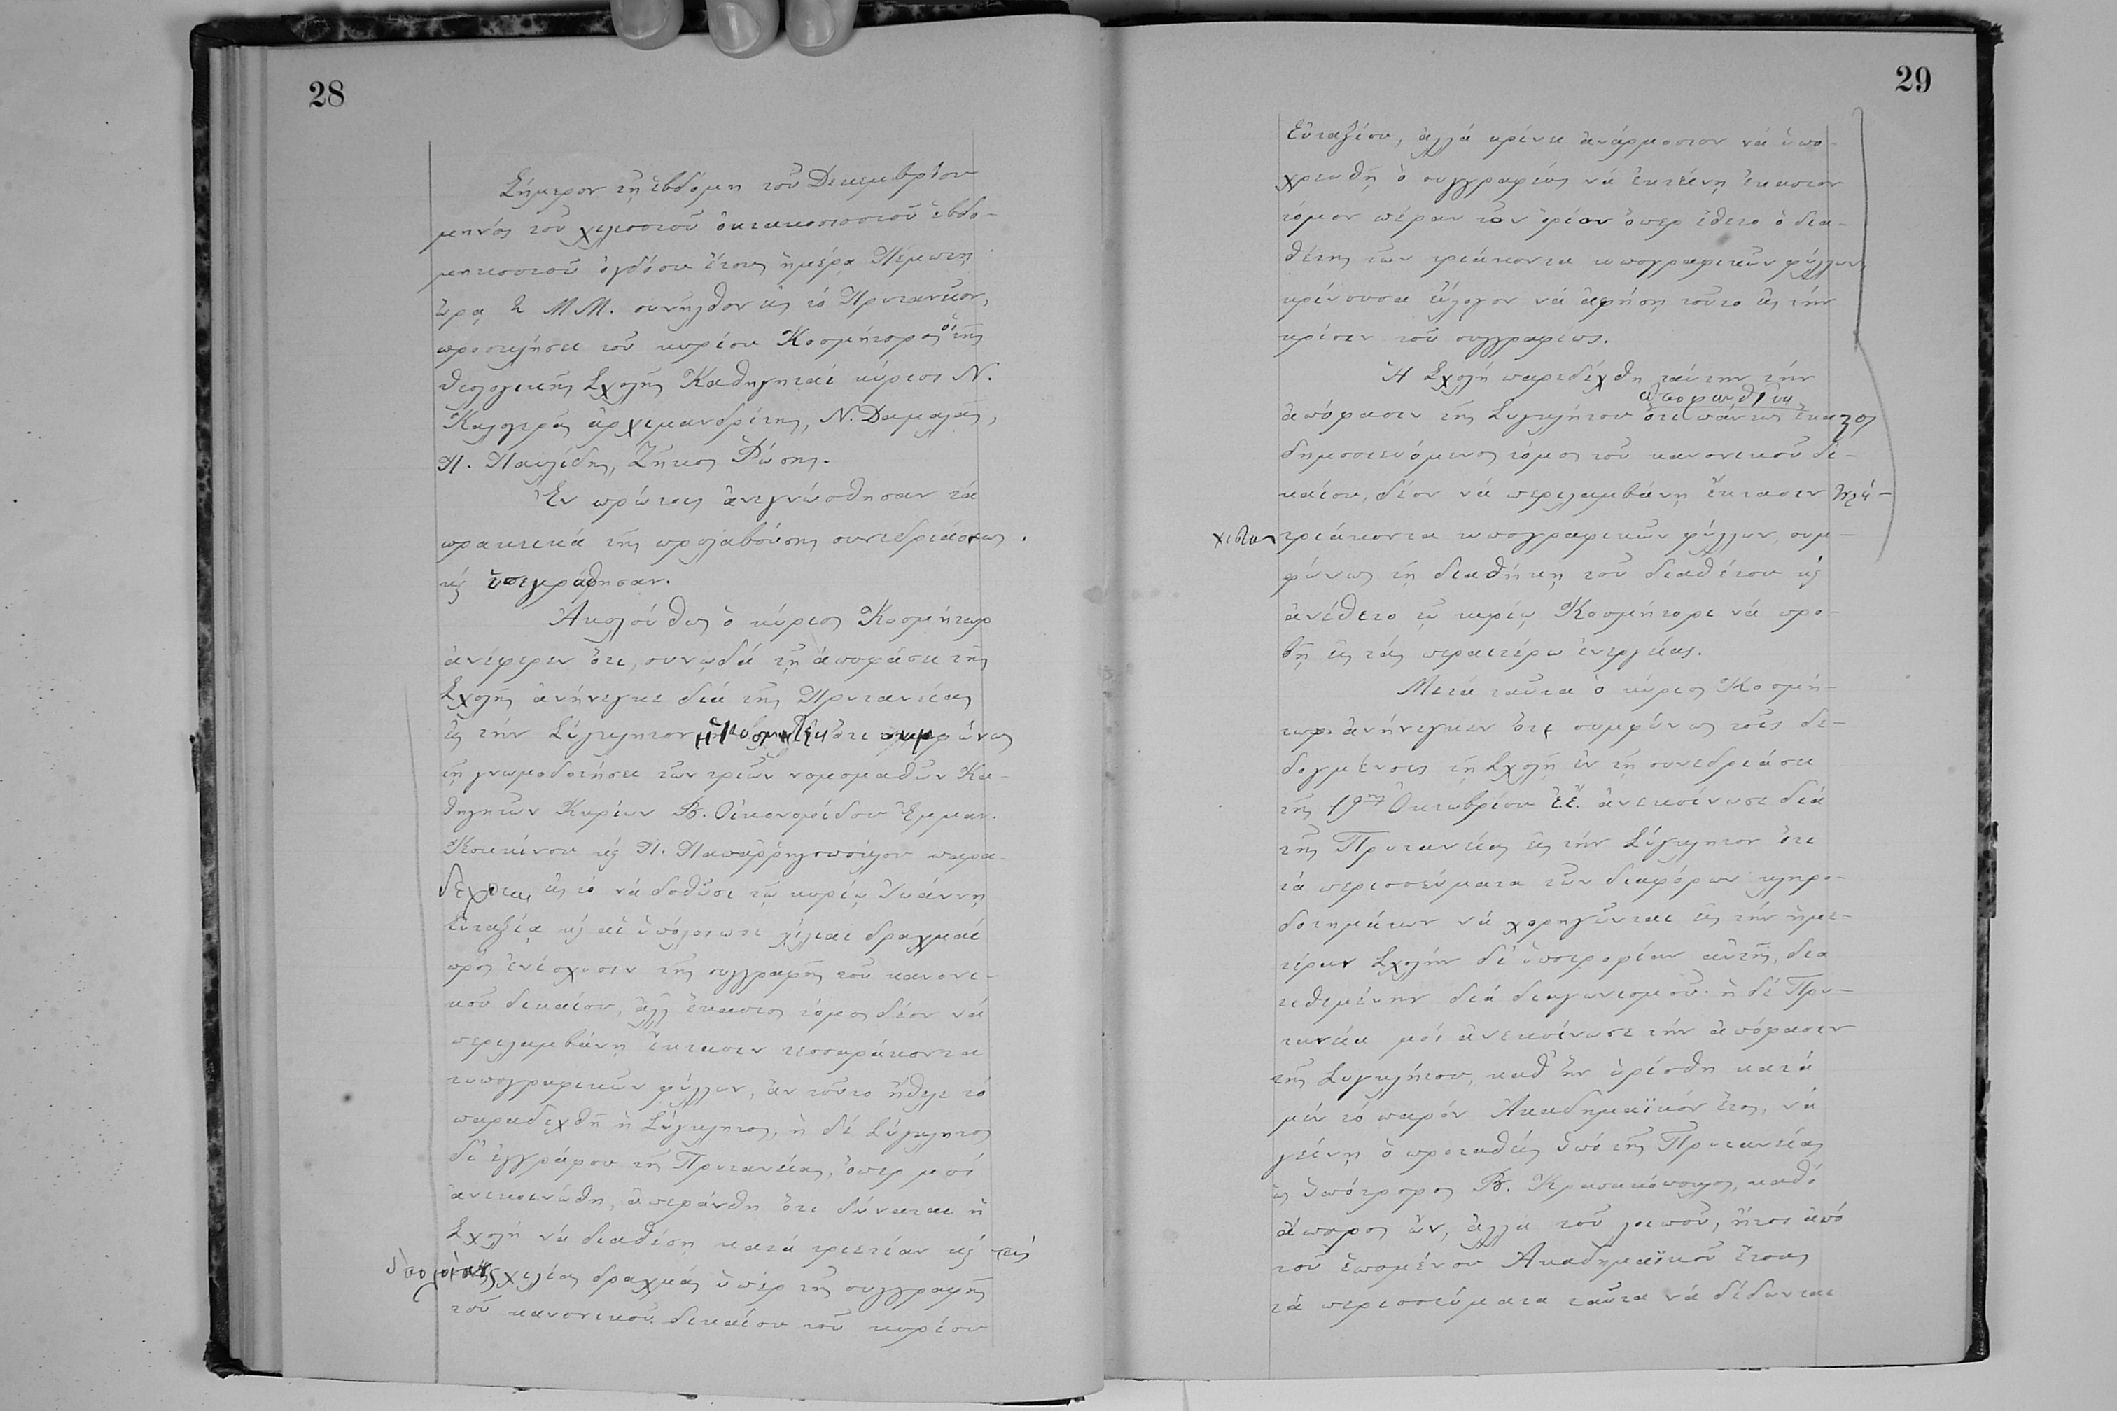 28
Σήμερον τῇ ἑβδόμῃ τοῦ Δεκεμβρίου
μηνός τοῦ χιλιοστοῦ ὀκτακοσιοστοῦ ἑβδο-
μηκοστοῦ ὀγδόου ἔτους ἡμέρᾳ Πέμπτῃ
ὥρᾳ 2 Μ.Μ. συνῆλθον εἰς τό Πρυτανεῖον,
προσκλήσει τοῦ κυρίου Κοσμήτορος οἱ τῆς
Θεολογικῆς Σχολῆς Καθηγηταί κύριοι Ν.
Καλογερᾶς ἀρχιμανδρίτης, Ν. Δαμαλᾶς,
Π. Παυλίδης, Ζῆκος Ῥώσης.
Ἐν πρώτοις ἀνεγνώσθησαν τά
πρακτικά τῆς προλαβούσης συνεδριάσεως.
κ ὑπεγράφησαν.
Ἀκολούθως ὁ κύριος Κοσμήτωρ
ἀνέφερεν ὅτι, συνῳδά τῇ ἀποφάσει τῆς
Σχολῆς ἀνήνεγκε διά τῆς Πρυτανείας
εἰς τήν Σύγκλητον ὅτι συμφώνως
τῇ γνωμοδοτήσει τῶν τριῶν νομομαθῶν Κα-
θηγητῶν Κυρίων Β. Οἰκονομίδου Ἐμμαν.
Κοκκίνου κ Π. Παπαρρηγοπούλου παρα-
δέχεται εἰς τό νά δοθῶσι τῷ κυρίῳ Ἰωάννῃ
Εὐταξίᾳ κ αἱ ὑπόλοιποι χίλιαι δραχμαί
πρός ἐνίσχυσιν τῆς συγγραφῆς τοῦ κανονι-
κοῦ δικαίου, ἀλλ' ἕκαστος τόμος δέον νά
περιλαμβάνῃ ἔκτασιν τεσσαράκοντα
τυπογραφικῶν φύλλων, ἄν τοῦτο ἤθελε τό
παραδεχθῆ ἡ Σύγκλητος, ἡ δέ Σύγκλητος
δι' ἐγγράφου τῆς Πρυτανείας, ὅπερ μοί
ἀνεκοινώθη, ἀπεφάνθη ὅτι δύναται ἡ
Σχολή νά διαθέσῃ κατά τριετίαν κ τάς
ὑπολοίπους χιλίας δραχμάς ὑπέρ τῆς συγγραφῆς
τοῦ κανονικοῦ δικαίου τοῦ κυρίου
29
Εὐταξίου, ἀλλά κρίνει ἀνάρμοστον νά ὑπο-
χρεωθῇ ὁ συγγραφεύς νά ἐκτείνῃ ἕκαστον
τόμον πέραν τῶν ὁρίων ὅπερ ἔθετο ὁ δια-
θέτης τῶν τριάκοντα τυπογραφικῶν φύλλων,
κρίνουσα εὔλογον νά ἀφήσῃ τοῦτο εἰς τήν
κρίσιν τοῦ συγγραφέως.
Ἡ Σχολή παρεδέχθη ταύτην τήν
ἀπόφασιν τῆς Συγκλήτου ἀποφανθεῖσα ὅτι πάντως ἕκαστος
δημοσιευόμενος τόμος τοῦ κανονικοῦ δι-
καίου, δέον νά περιλαμβάνῃ ἔκτασιν ἐλά-
χιστον τριάκοντα τυπογραφικῶν φύλλων, συμ-
φώνως τῇ διαθήκῃ τοῦ διαθέτου κ
ἀνέθετο τῷ κυρίῳ Κοσμήτορι νά προ-
βῇ εἰς τάς περαιτέρω ἐνεργείας.
Μετά ταῦτα ὁ κύριος Κοσμή-
τωρ ἀνήνεγκεν ὅτι συμφώνως τοῖς δε-
δογμένοις τῇ Σχολῇ ἐν τῇ συνεδριάσει
τῆς 19ης Ὀκτωβρίου ἔ.ἔ. ἀνεκοίνωσε διά
τῆς Πρυτανείας εἰς τήν Σύγκλητον ὅτι
τά περισσεύματα τῶν διαφόρων κληρο-
δοτημάτων νά χορηγῶνται εἰς τήν ἡμε-
τέραν Σχολήν δι' ὑποτροφίαν αὐτῆς, δια
τιθεμένην διά διαγωνισμοῦ· ἡ δέ Πρυ-
τανεία μοί ἀνεκοίνωσε τήν ἀπόφασιν
τῆς Συγκλήτου, καθ' ἥν ὡρίσθη κατά
μέν τό παρόν Ἀκαδημαϊκόν ἔτος, νά
γείνῃ ὁ προταθείς ὑπό τῆς Πρυτανείας
ὡς ὑπότροφος Β. καθό
ἄπορος ὤν, ἀλλά τοῦ λοιποῦ, ἤτοι ἀπό
τοῦ ἑπομένου Ἀκαδημαϊκοῦ ἔτους
τά περισσεύματα ταῦτα νά δίδωνται